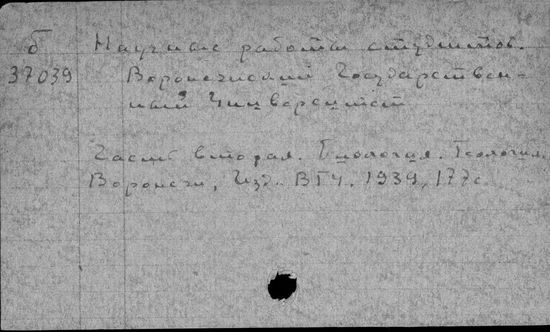 б Научные работы студентов.
37039 Воронежский Государствен-
ный Университет
Часть вторая. Биология. Геология.
Воронеж, Изд. ВГУ. 1939, 177с